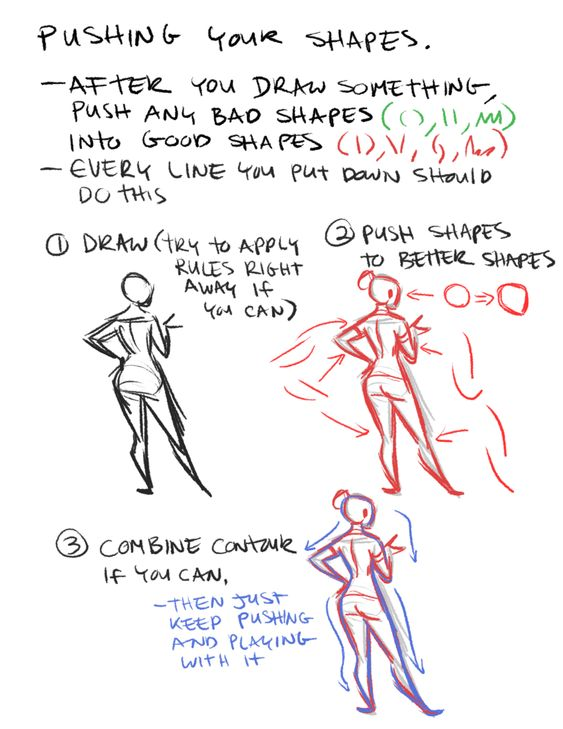 PUSHING YOUR SHAPES.
– AFTER YOU DRAW SOMETHING,
PUSH ANY BAD SHAPES (
INTO GOOD SHAPES (
– EVERY LINE YOU PUT DOWN SHOULD
DO THIS
① DRAW (TRY TO APPLY
RULES RIGHT
AWAY IF
YOU CAN)
② PUSH SHAPES
TO BETTER SHAPES
③ COMBINE CONTOUR
IF YOU CAN,
– THEN JUST
KEEP PUSHING
AND PLAYING
WITH IT